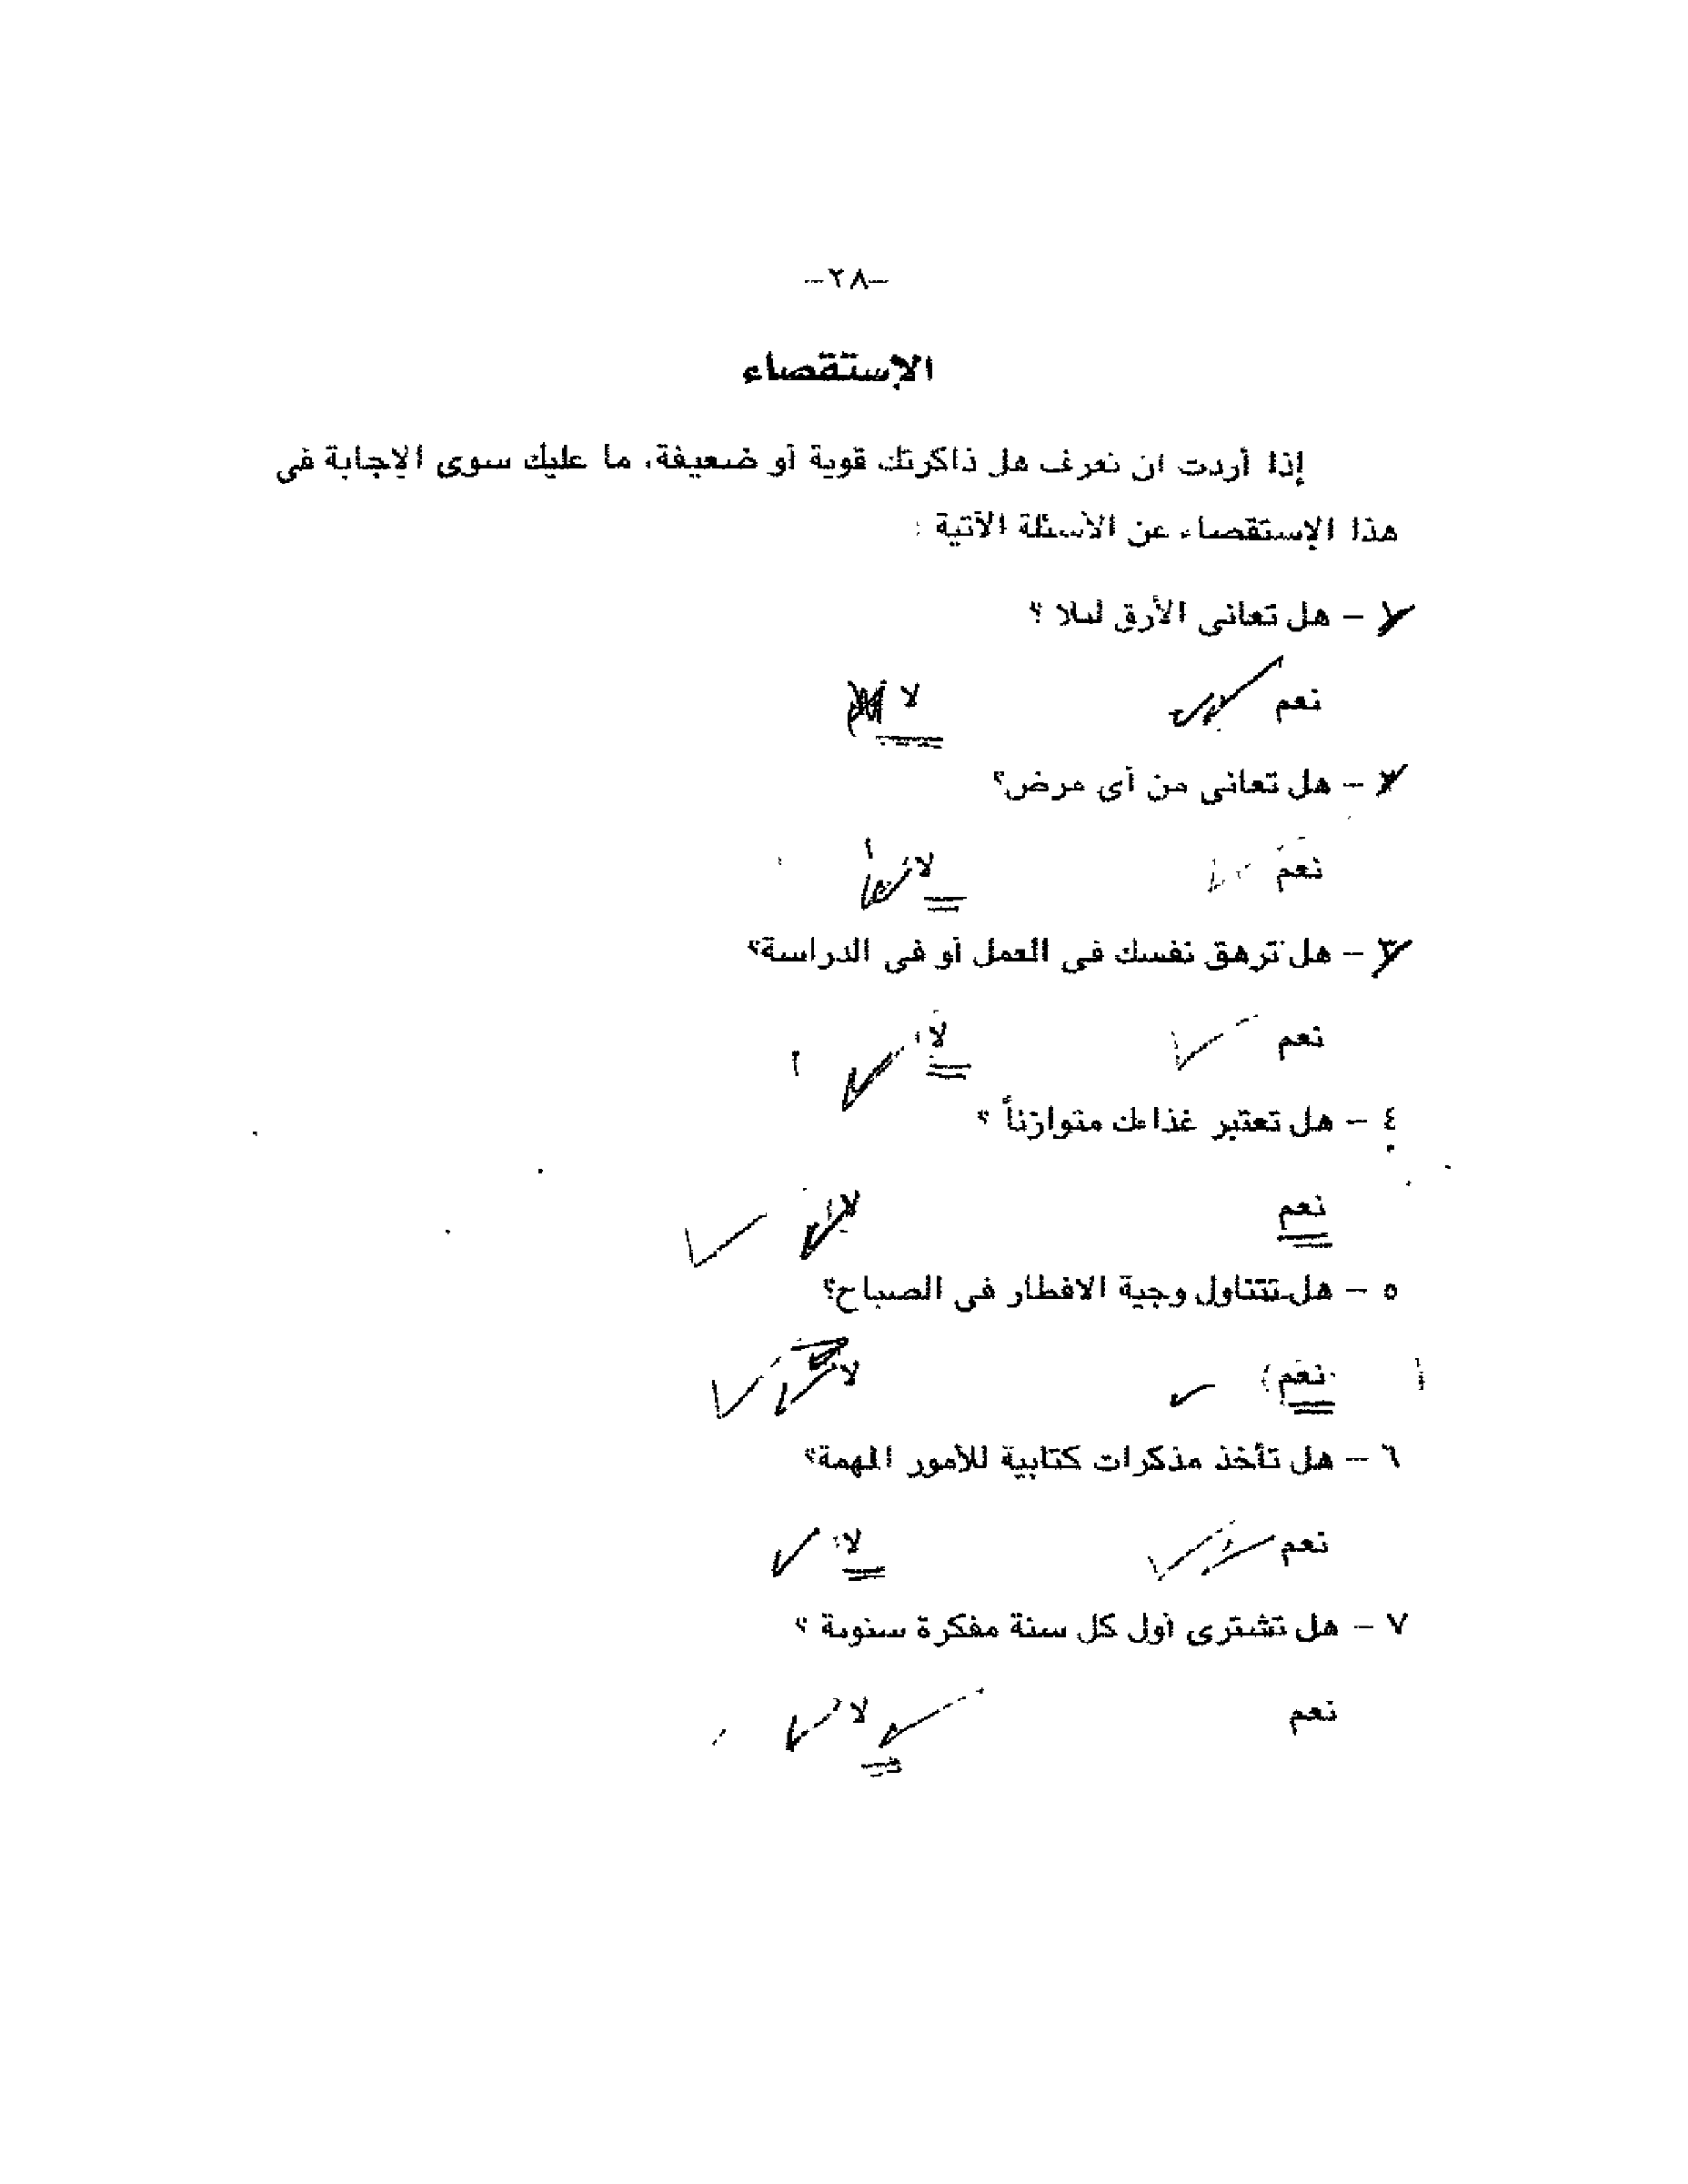 -٢٨-
الإستقصاء
إذا أردت ان تعرف هل ذاكرتك قوية أو ضعيفة، ما عليك سوى الإجابة فى
هذا الإستقصاء عن الأسئلة الآتية :
١ - هل تعانى الأرق ليلا ؟
نعم لا
٢ - هل تعانى من أى مرض؟
نعم لا
٣ - هل ترهق نفسك فى العمل أو فى الدراسة؟
نعم لا
٤ - هل تعتبر غذاءك متوازناً ؟
نعم لا
٥ - هل تتناول وجبة الافطار فى الصباح؟
نعم لا
٦ - هل تأخذ مذكرات كتابية للأمور المهمة؟
نعم لا
٧ - هل تشترى أول كل سنة مفكرة سنوية ؟
نعم لا